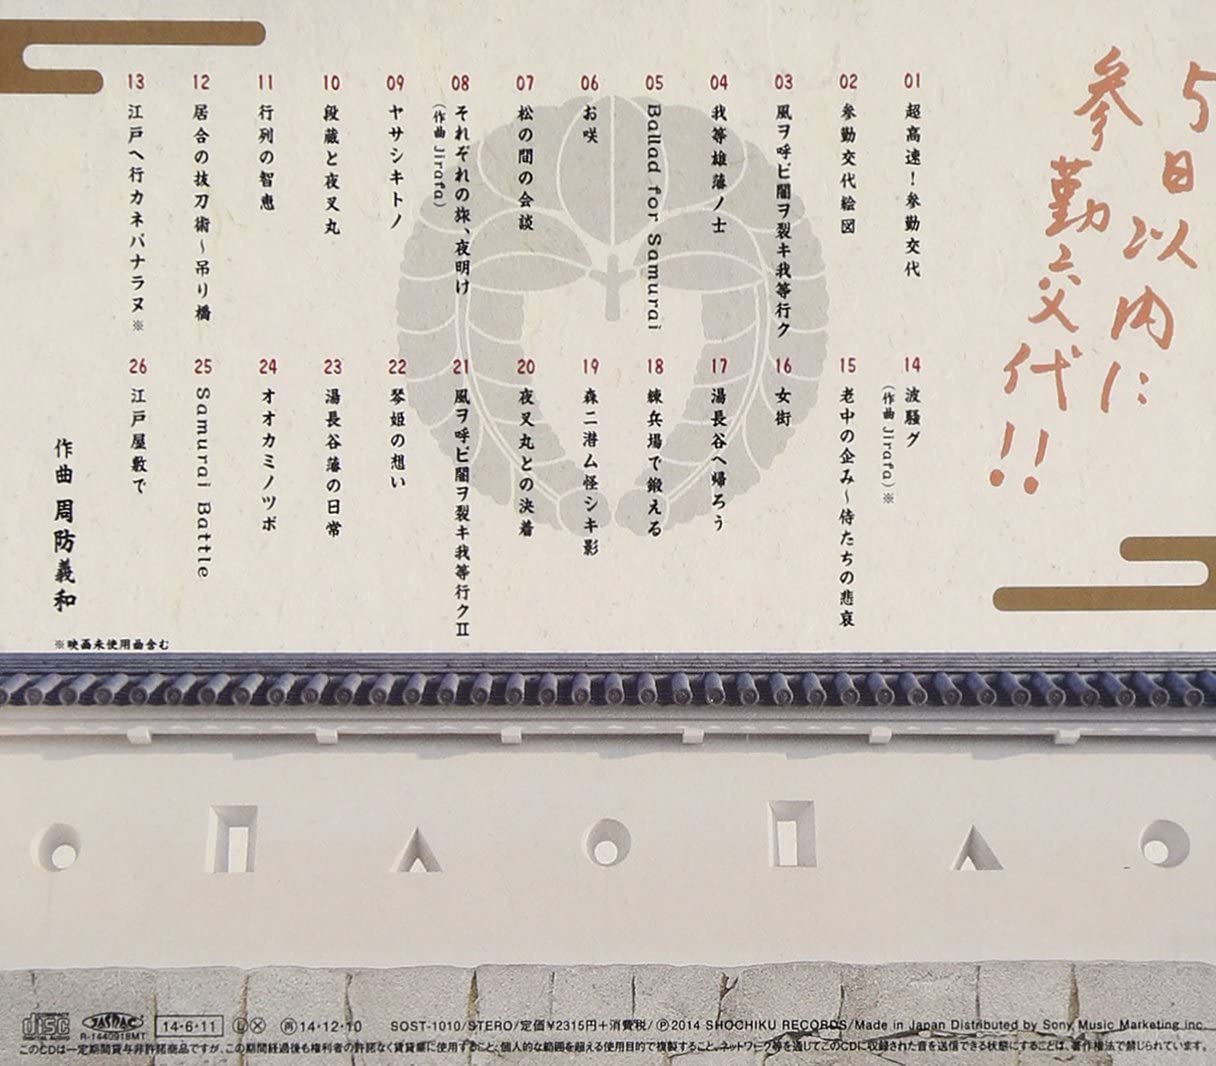 5日以内に
参勤交代!!
01 超高速!参勤交代
02 参勤交代絵図
03 風ヲ呼ビ闇ヲ裂キ我等行ク
04 我等雄藩ノ士
05 Ballad for Samurai
06 お咲
07 松の間の会談
08 それぞれの旅、夜明け
(作曲 Jirafa)
09 ヤサシキトノ
10 段蔵と夜叉丸
11 行列の智恵
12 居合の抜刀術~吊り橋
13 江戸へ行カネバナラヌ ※
14 波騒グ
(作曲 Jirafa) ※
15 老中の企み~侍たちの悲哀
16 女街
17 湯長谷へ帰ろう
18 練兵場で鍛える
19 森ニ潜ム怪シキ影
20 夜叉丸との決着
21 風ヲ呼ビ闇ヲ裂キ我等行クⅡ
22 琴姫の想い
23 湯長谷藩の日常
24 オオカミノツボ
25 Samurai Battle
26 江戸屋敷で
作曲 周防義和
※映画未使用曲含む
disc JASRAC R-1440918MT 14・6・11 Ⓛ Ⓧ 再14・12・10 SOST-1010/STERO/定価¥2315円+消費税/Ⓟ2014 SHOCHIKU RECORDS/Made in Japan Distributed by Sony Music Marketing inc.
このCDは一定期間貸与非許諾商品ですが、この期間経過後も権利者の許諾なく賃貸業に使用すること、個人的な範囲を超える使用目的で複製すること、ネットワーク等を通じてこのCDに収録された音を送信できる状態にすることは、著作権法で禁じられています。